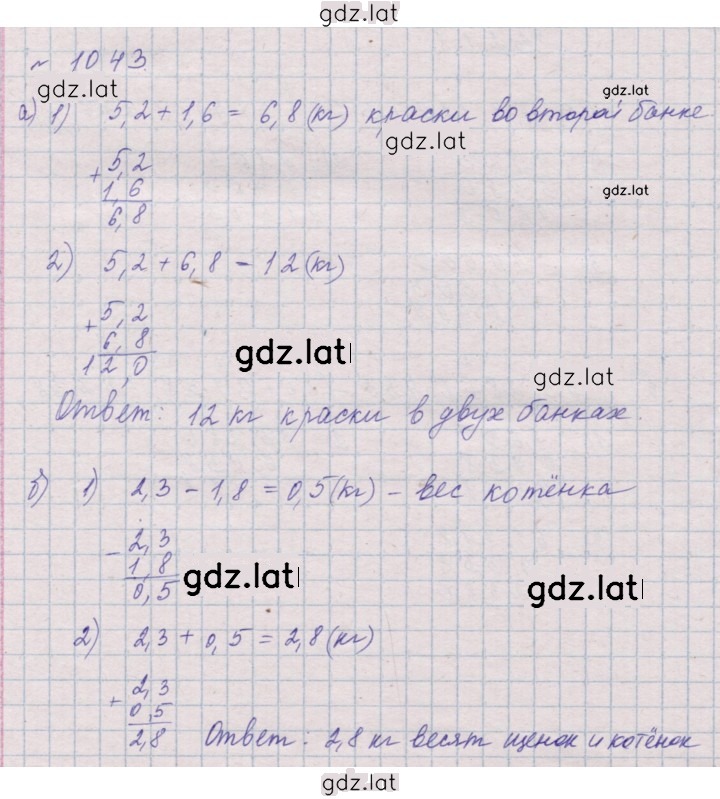 gdz.lat
№ 1043.
gdz.lat
gdz.lat
а) 1) 5,2 + 1,6 = 6,8 (кг) краски во второй банке
gdz.lat
+ 5,2
1,6
6,8
gdz.lat
2) 5,2 + 6,8 - 12 (кг)
+ 5,2
6,8
12,0
gdz.lat
gdz.lat
Ответ: 12 кг краски в двух банках.
б) 1) 2,3 - 1,8 = 0,5 (кг) - вес котёнка
- 2,3
1,8
0,5
gdz.lat
gdz.lat
2) 2,3 + 0,5 = 2,8 (кг)
+ 2,3
0,5
2,8
Ответ: 2,8 кг весят щенок и котёнок
gdz.lat